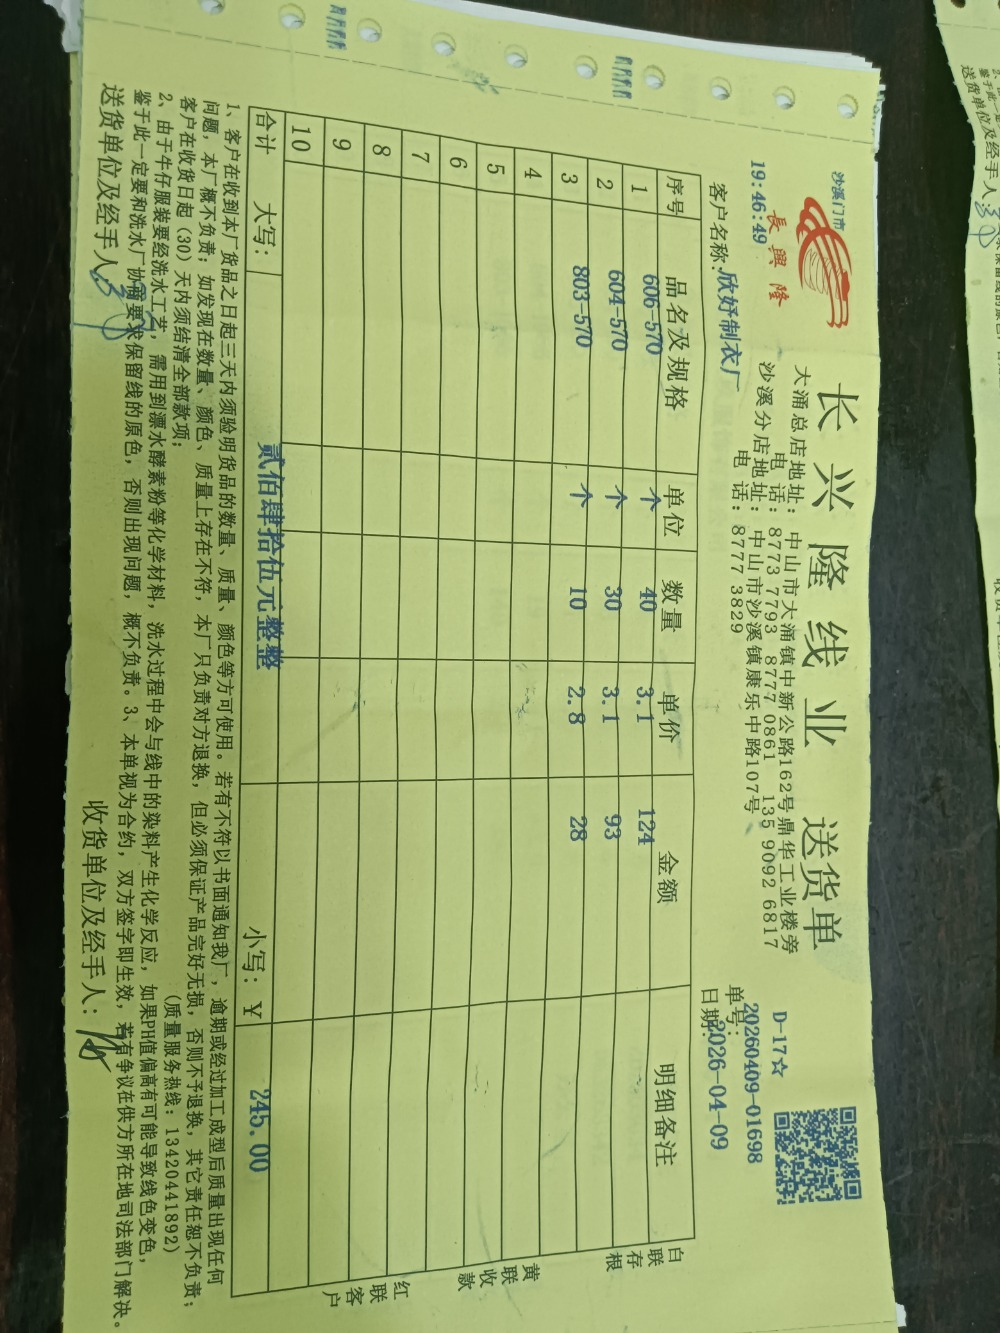 沙溪门市
長興隆
19:46:49
长兴隆线业 送货单
大涌总店地址：中山市大涌镇中新公路162号鼎华工业楼旁
电话：8773 7793 8777 0861 135 9092 6817
沙溪分店地址：中山市沙溪镇康乐中路107号
电话：8777 3829
D-17☆
单号：20260409-01698
客户名称：欣妤制衣厂 日期：2026-04-09
序号 品名及规格 单位 数量 单价 金额 明细备注
1 606-570 个 40 3.1 124
2 604-570 个 30 3.1 93
3 803-570 个 10 2.8 28
4
5
6
7
8
9
10
合计 大写：贰佰肆拾伍元整整 小写：￥ 245.00
白联存根
黄联收款
红联客户
1、客户在收到本厂货品之日起三天内须验明货品的数量、质量、颜色等方可使用。若有不符以书面通知我厂，逾期或经过加工成型后质量出现任何
问题，本厂概不负责；如发现在数量、颜色、质量上存在不符，本厂只负责对方退换，但必须保证产品完好无损，否则不予退换，其它责任恕不负责；
客户在收货日起（30）天内须结清全部款项； （质量服务热线：13420441892）
2、由于牛仔服装要经洗水工艺，需用到漂水酵素粉等化学材料，洗水过程中会与线中的染料产生化学反应，如果PH值偏高有可能导致线色变色，
鉴于此一定要和洗水厂协商要求保留线的原色，否则出现问题，概不负责。3、本单视为合约，双方签字即生效，若有争议在供方所在地司法部门解决。
送货单位及经手人： 收货单位及经手人：
送货单位及经手人：